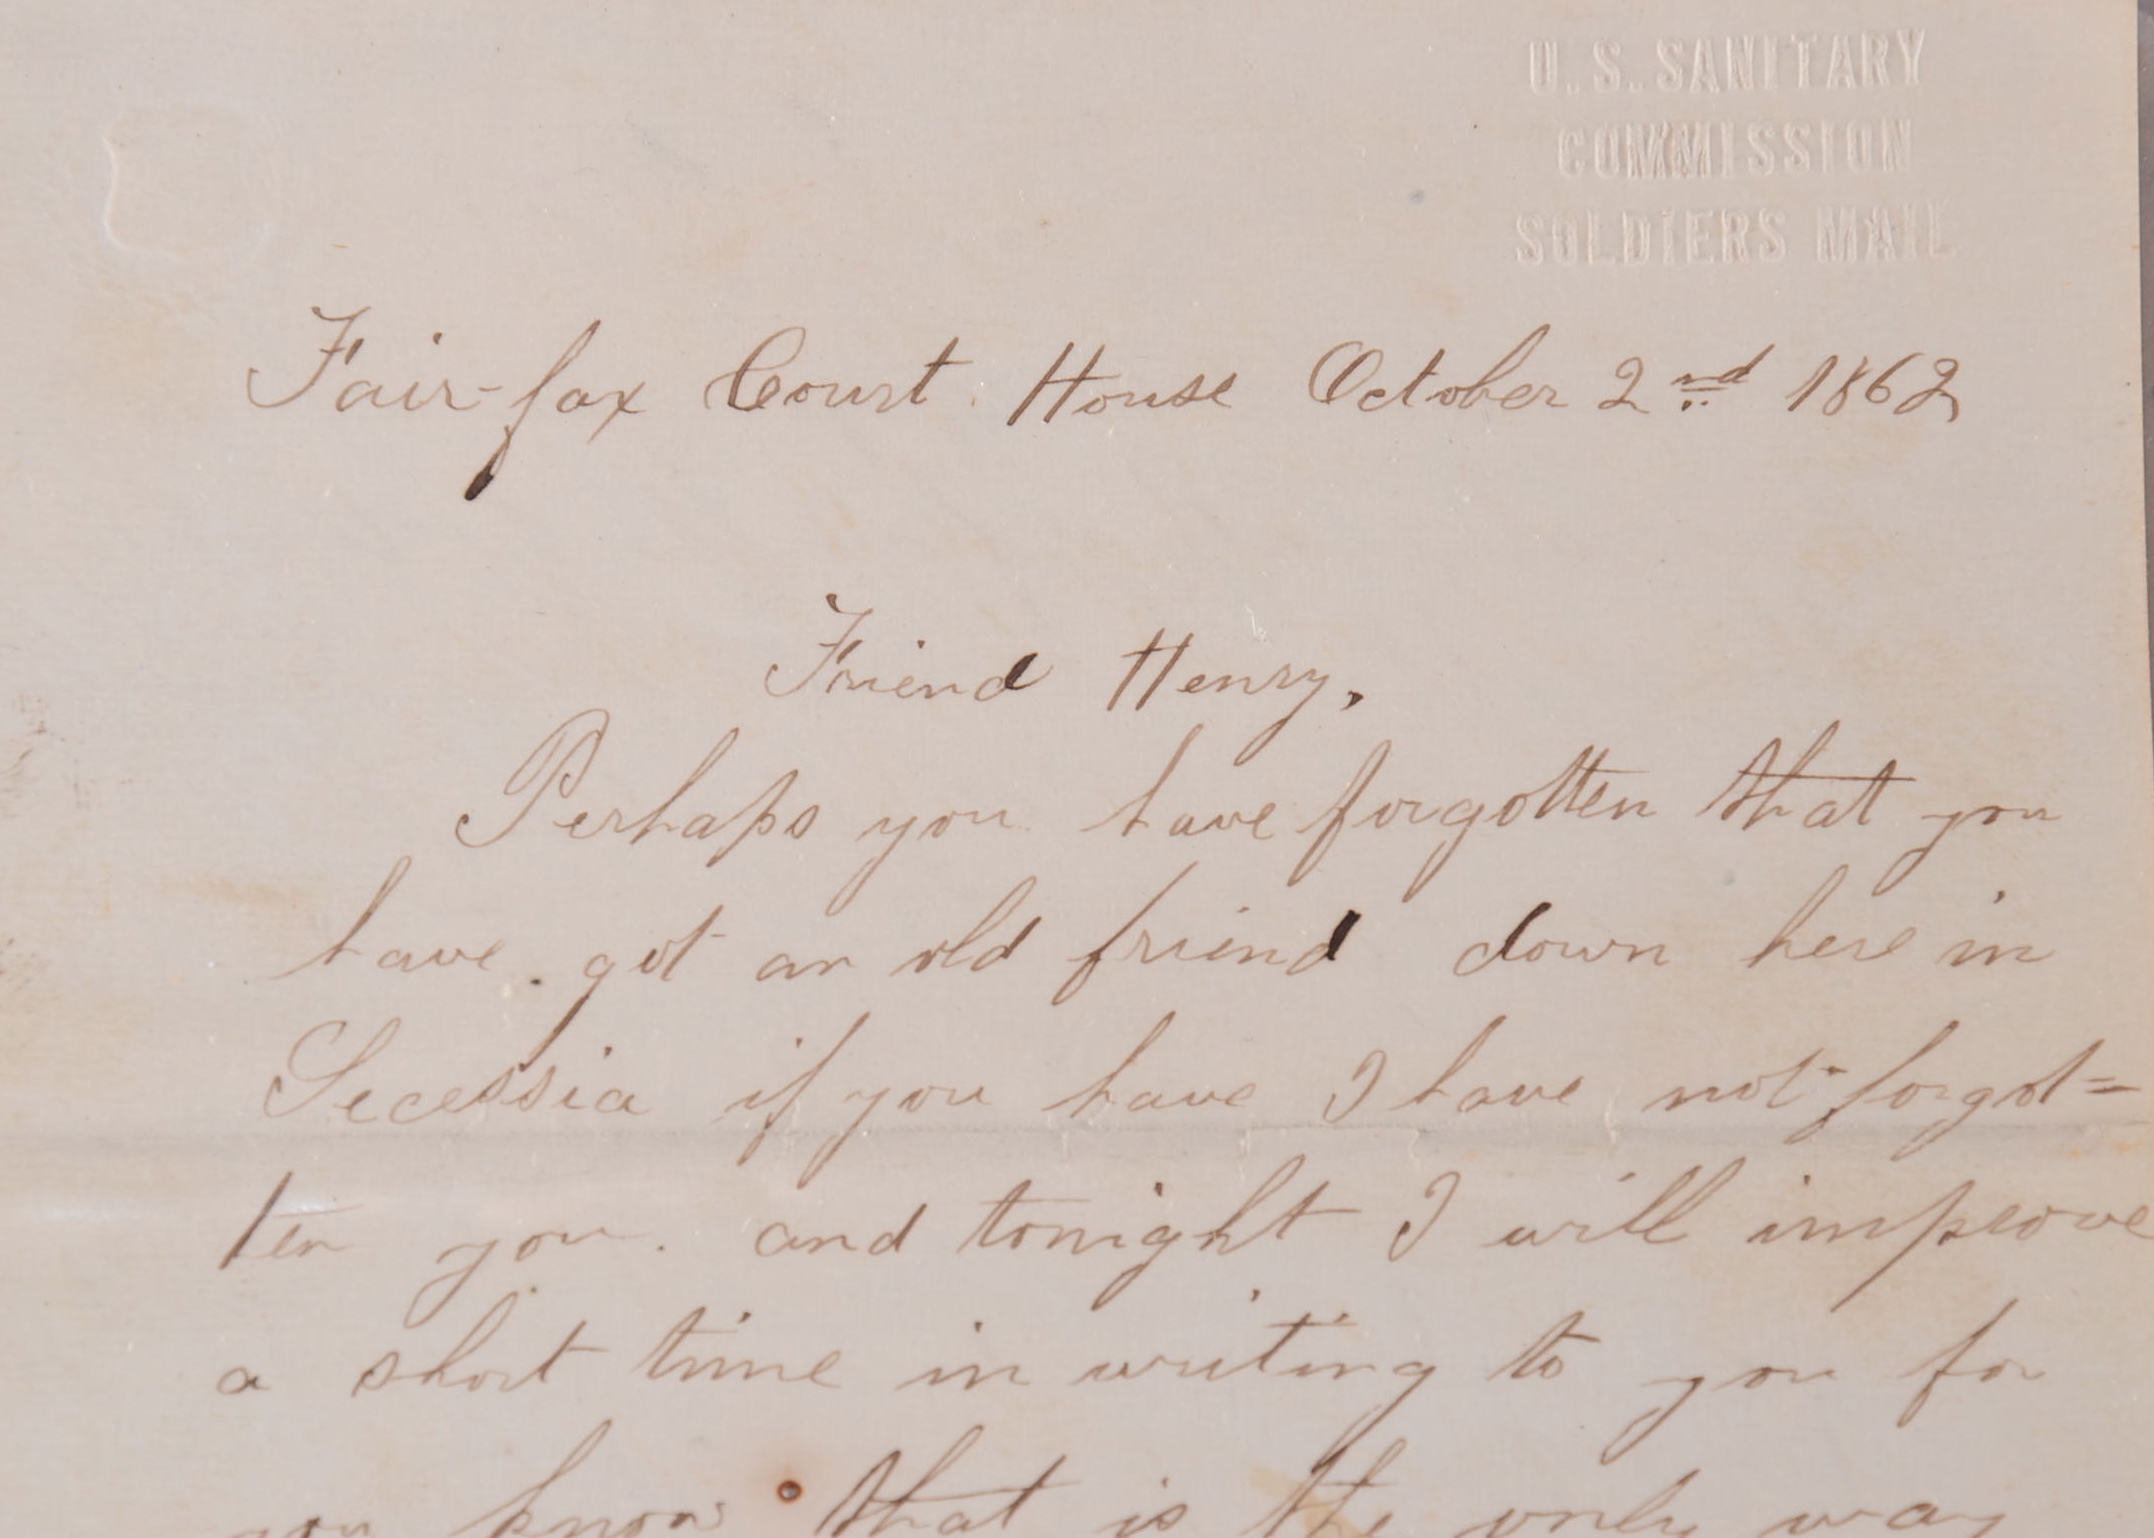 U.S. SANITARY
COMMISSION
SOLDIERS MAIL
Fair-fax Court House October 2nd 1862
Friend Henry,
Perhaps you have forgotten that you
have got an old friend down here in
Secessia if you have I have not forgot=
ten you. and tonight I will improve
a short time in writing to you for
you know that is the only way